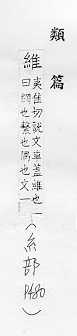 類篇
維
夷隹切說文車蓋維也一
曰綱也繫也隅也文一
(糸部 P480)